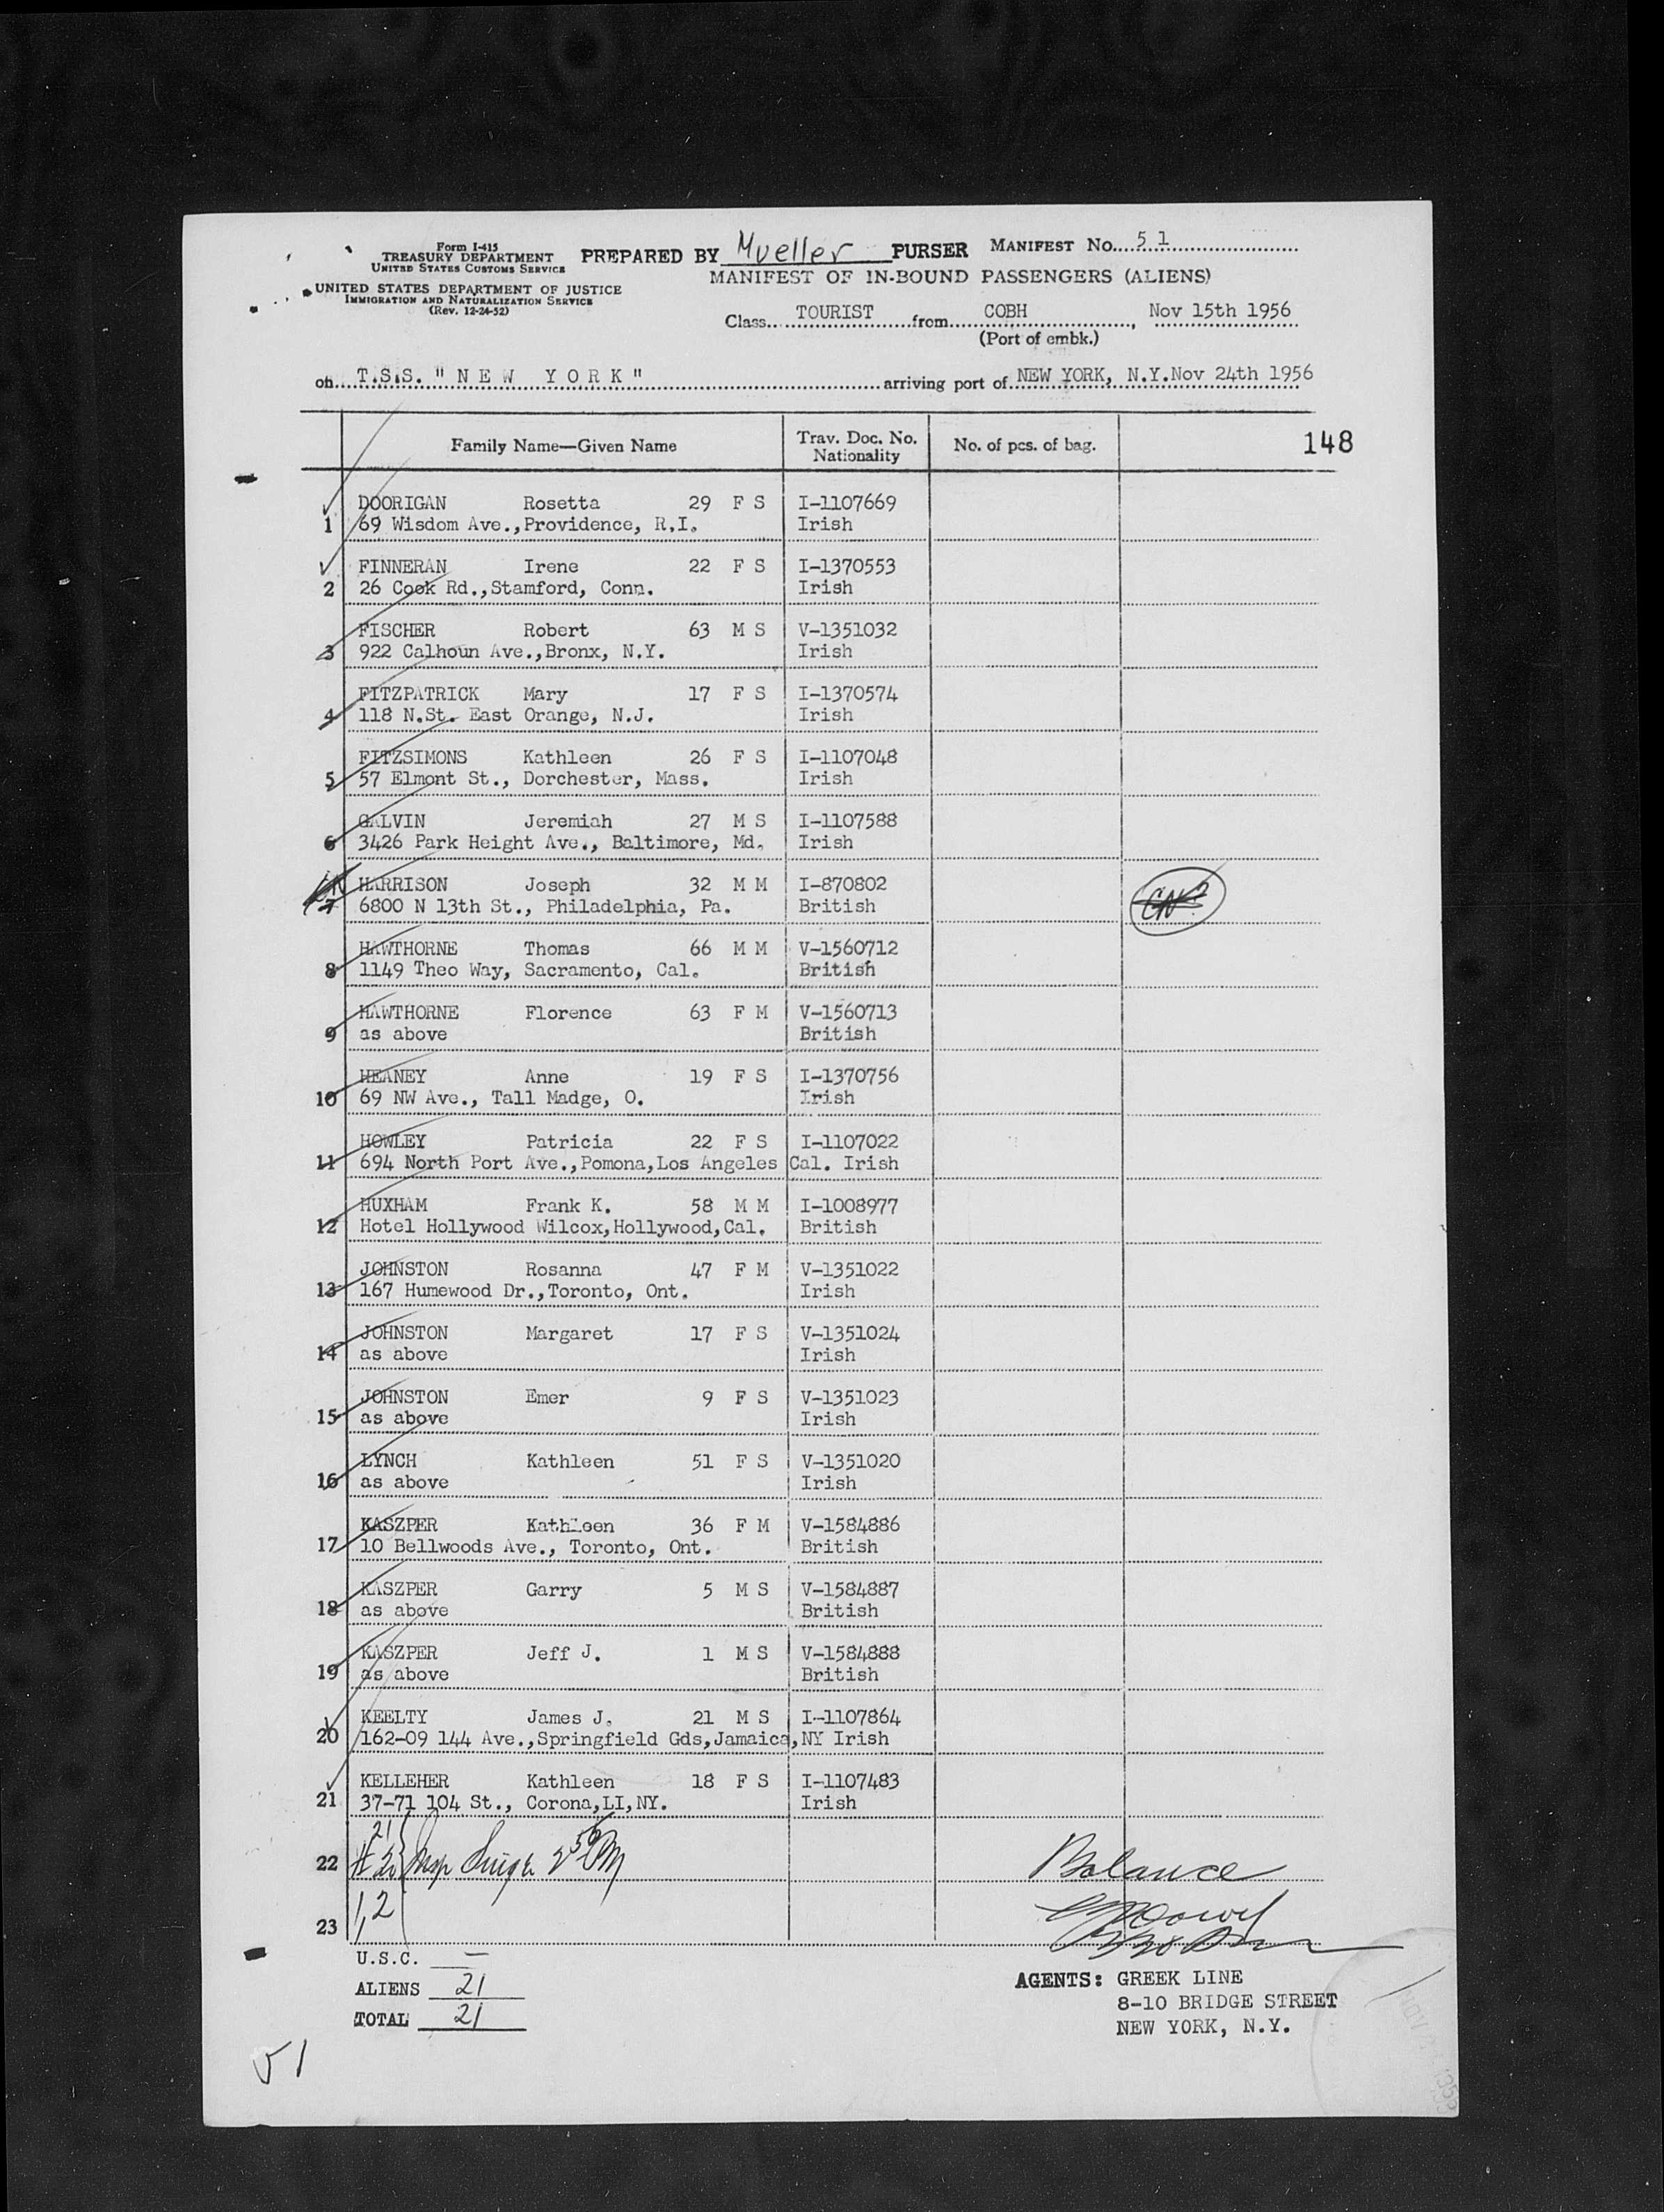 Form I-415
TREASURY DEPARTMENT
UNITED STATES CUSTOMS SERVICE
UNITED STATES DEPARTMENT OF JUSTICE
IMMIGRATION AND NATURALIZATION SERVICE
(Rev. 12-24-52)
PREPARED BY Mueller PURSER MANIFEST No. 51
MANIFEST OF IN-BOUND PASSENGERS (ALIENS)
Class TOURIST from COBH, Nov 15th 1956
(Port of embk.)
on T.S.S. "NEW YORK" arriving port of NEW YORK, N.Y. Nov 24th 1956
Family Name—Given Name Trav. Doc. No. Nationality No. of pcs. of bag. 148
DOORIGAN Rosetta 29 F S I-1107669
1 69 Wisdom Ave.,Providence, R.I. Irish
FINNERAN Irene 22 F S I-1370553
2 26 Cook Rd.,Stamford, Conn. Irish
FISCHER Robert 63 M S V-1351032
3 922 Calhoun Ave.,Bronx, N.Y. Irish
FITZPATRICK Mary 17 F S I-1370574
4 118 N.St. East Orange, N.J. Irish
FITZSIMONS Kathleen 26 F S I-1107048
5 57 Elmont St., Dorchester, Mass. Irish
GALVIN Jeremiah 27 M S I-1107588
6 3426 Park Height Ave., Baltimore, Md. Irish
HARRISON Joseph 32 M M I-870802
7 6800 N 13th St., Philadelphia, Pa. British
HAWTHORNE Thomas 66 M M V-1560712
8 1149 Theo Way, Sacramento, Cal. British
HAWTHORNE Florence 63 F M V-1560713
9 as above British
HEANEY Anne 19 F S I-1370756
10 69 NW Ave., Tall Madge, O. Irish
HOWLEY Patricia 22 F S I-1107022
11 694 North Port Ave.,Pomona,Los Angeles Cal. Irish
HUXHAM Frank K. 58 M M I-1008977
12 Hotel Hollywood Wilcox,Hollywood,Cal. British
JOHNSTON Rosanna 47 F M V-1351022
13 167 Humewood Dr.,Toronto, Ont. Irish
JOHNSTON Margaret 17 F S V-1351024
14 as above Irish
JOHNSTON Emer 9 F S V-1351023
15 as above Irish
LYNCH Kathleen 51 F S V-1351020
16 as above Irish
KASZPER Kathleen 36 F M V-1584886
17 10 Bellwoods Ave., Toronto, Ont. British
KASZPER Garry 5 M S V-1584887
18 as above British
KASZPER Jeff J. 1 M S V-1584888
19 as above British
KEELTY James J. 21 M S I-1107864
20 162-09 144 Ave.,Springfield Gds,Jamaica,NY Irish
KELLEHER Kathleen 18 F S I-1107483
21 37-71 104 St., Corona,LI,NY. Irish
21
22 Balance
1,2
23
U.S.C. —
ALIENS 21
TOTAL 21
AGENTS: GREEK LINE
8-10 BRIDGE STREET
NEW YORK, N.Y.
51